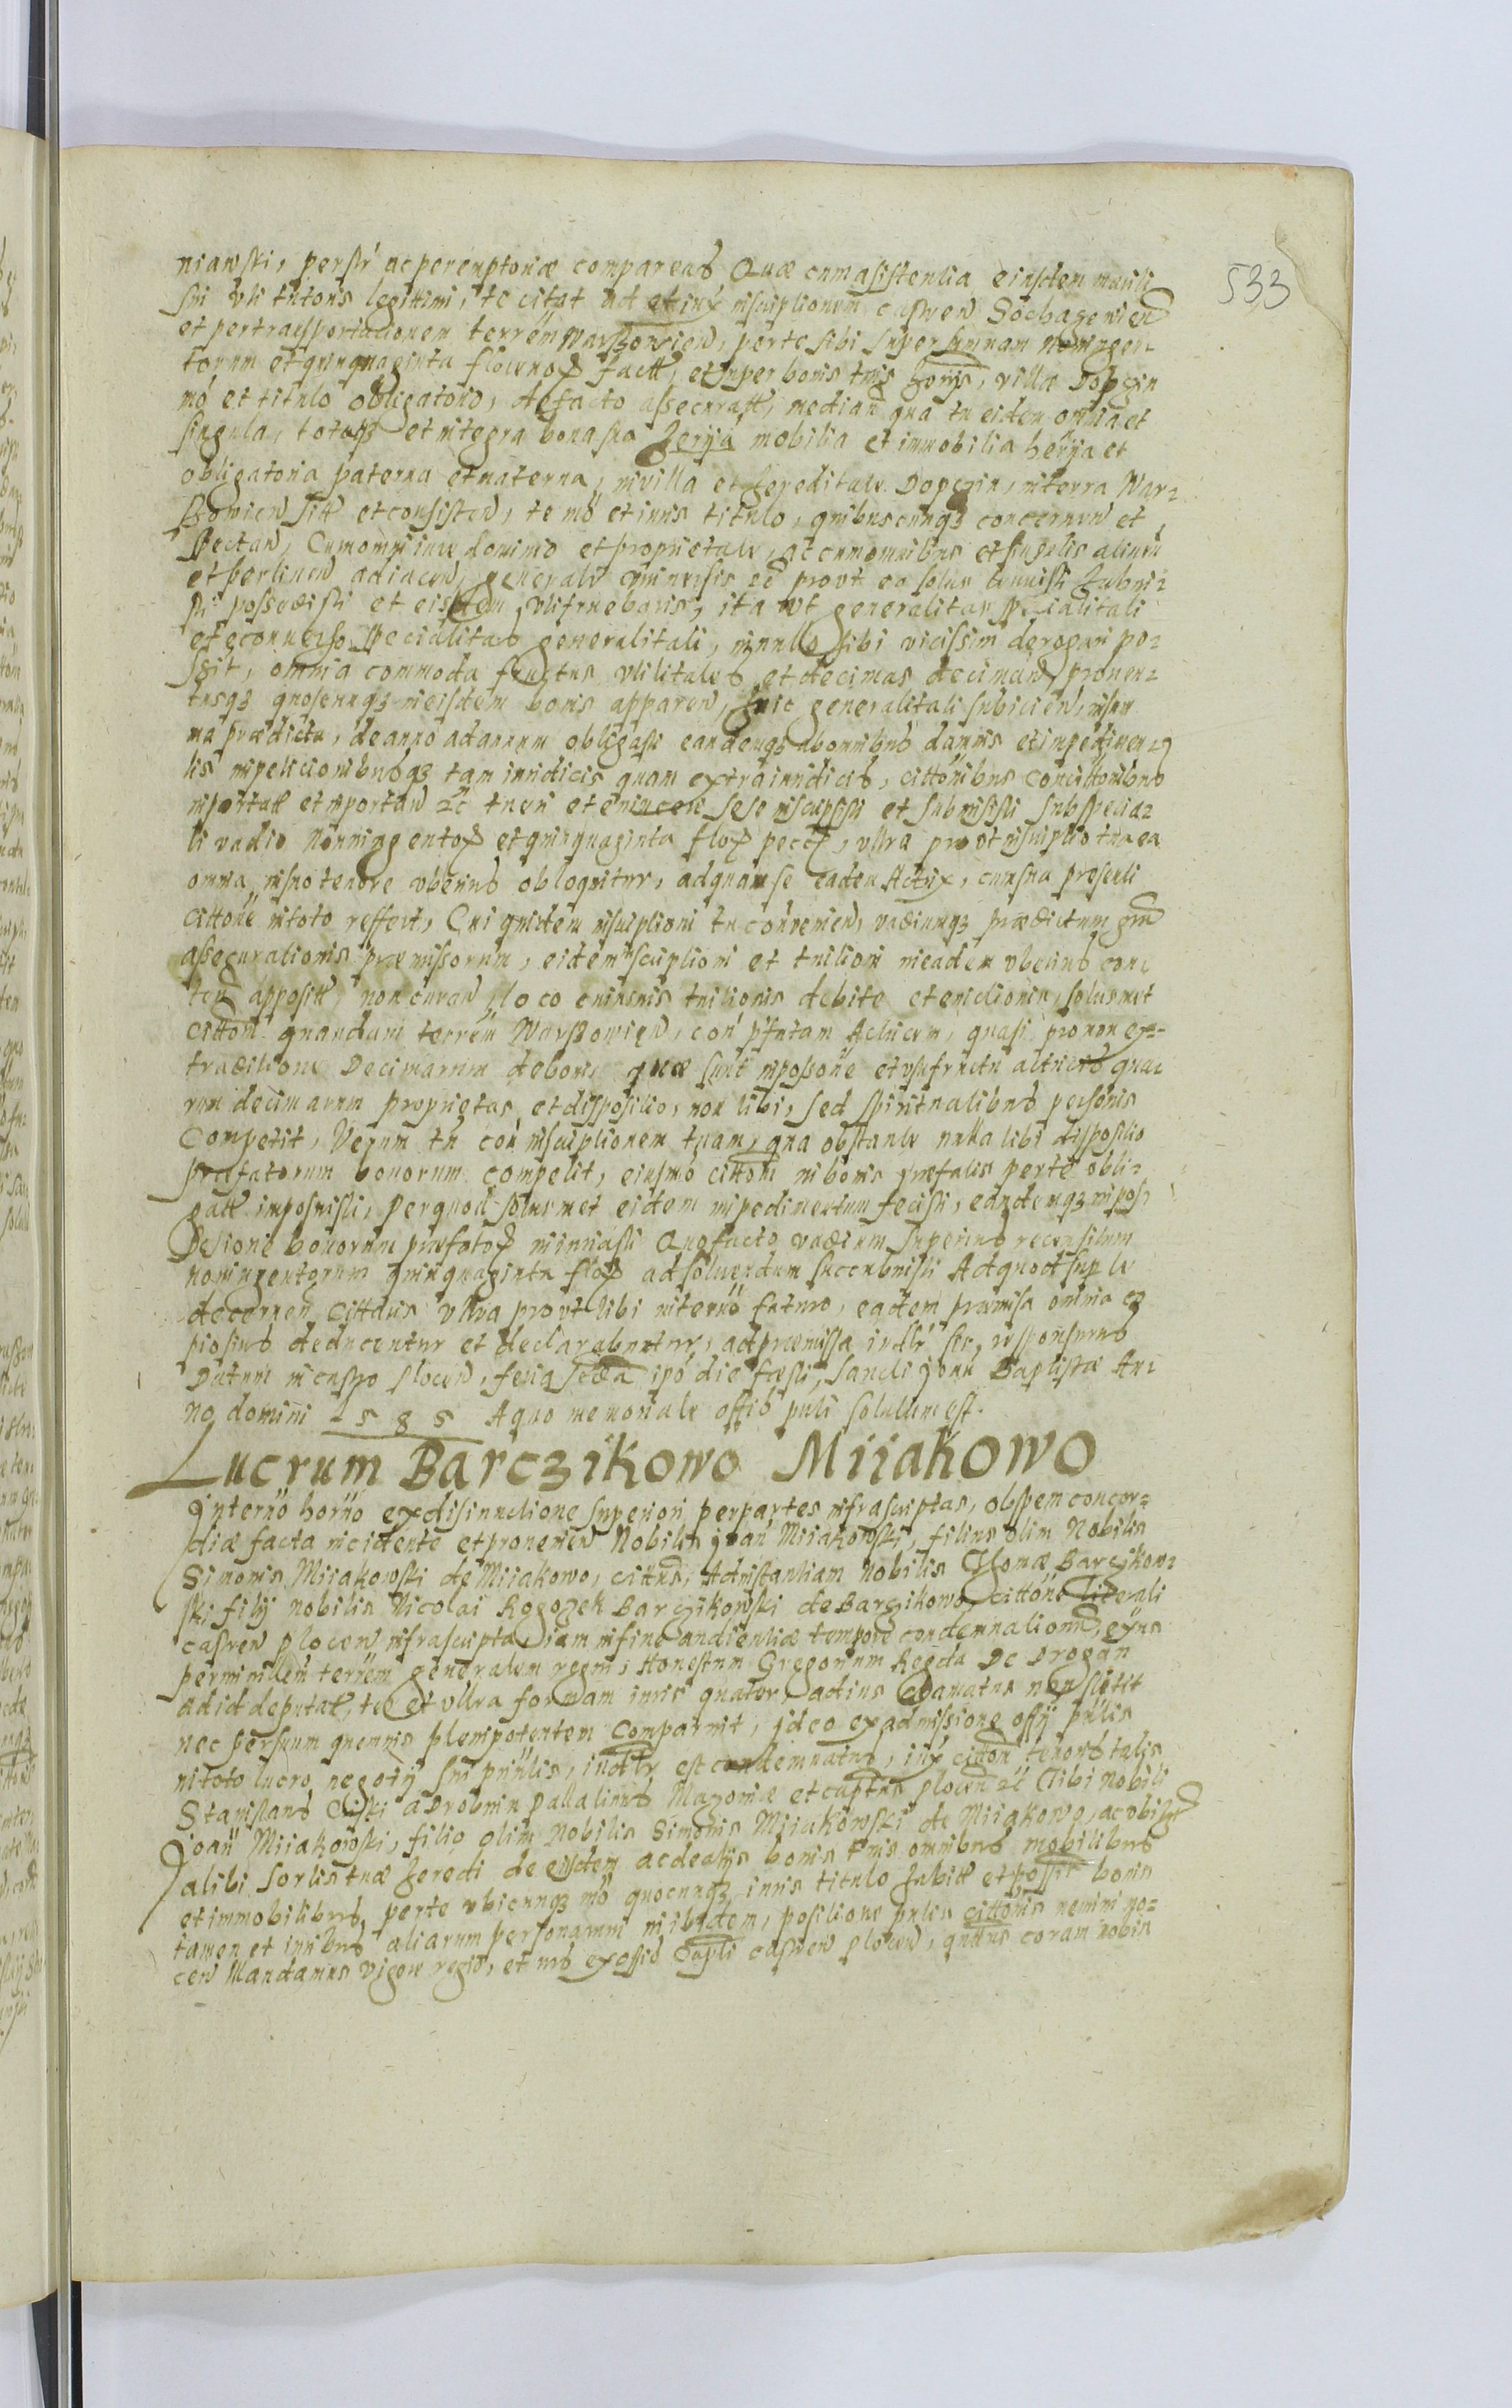 533
niawski, persr ac peremptoriæ comparens Quæ cum assistentia eiusdem mariti
sui uti tutoris legittimi, te citat ad et iux inscriptionem castren Sochaczewien
et pertransportationem terrem Warschowien, per te sibi super summam noningen-
torum et quinquaginta florenoꝝ factt, et super bonis tuis herijs, villæ Dopczin
mo et titulo obligatorio, de facto assecuratt, median qua tu eidem omnia et
singula, totaqʒ et integra bona sua herija mobilia et immobilia herija et
obligatoria paterna et materna, in villa et hereditate Dopczin, in terra War-
schowien sitt et consisten, te mo et iuris titulo, quibuscunqʒ concernen et
spectan, Cum omni iure dominio et proprietate, ac cum omnibus et singulis attinen
et pertinen adiacen, generalr universis ec prout ea solus tenuisti habui-
sti possedisti et eisdem utifruebaris, ita ut generalitas specialitati
et econverso specialitas generalitati, in nullo sibi vicissim derogari po-
ssit, omnia commoda fructus utilitates et decimas deciman, proven-
tusqʒ quoscunqʒ in eisdem bonis apparen, huic generalitati subicien, in sum
ma prædicta, de anno ad annum obligasti eandemqʒ ab omnibus damnis et impedimen-
tis impeticionibusqʒ tam iuridicis quam extraiuridicis, cittonibus concittonibus
importatt et importan ec tueri et evincere sese inscripsisti et submisisti sub specia-
li vadio Nonningentoꝝ et quinquaginta floꝝ pecc, ultra prout inscriptio tua ea
omnia in suo tenore uberius obloquitur, ad quam se eadem Actrix, cum sua præsenti
cittone in toto reffert, Cui quidem inscriptioni tu contravenien, vadiumqʒ prædictum grn
assecurationis præmissorum, eidem inscriptioni et tuitioni in eadem uberius con
ten appositt, non curan, loco cuiusvis tuitionis debite et evictionis, solusmet
citton quandam terrem Warschowien, con pfatam Actricem, quasi pro non ex-
traditione Decimarum de bonis quæ sunt in possone et usufructu actricis qua
rum decimarum proprietas et dispositio, non tibi, sed spiritualibus personis
Competit, Verum tn con inscriptionem tuam, qua obstante nulla tibi dispositio
præfatorum bonorum competit, eiusmo cittom in bonis præfatis per te obli-
gatt imposuisti, Per quod solusmet eidem impedimentum fecisti, eandemqʒ in pos-
sessione bonorum præfatoꝝ iniuriasti Quo facto vadium superius recensitum
noningentorum quinquaginta floꝝ ad solvendum succubuisti Ad quod sup te
decernen Cittaris ultra prout tibi in termo futuro, eadem præmissa omnia co
piosius deducentur et declarabuntur, ad præmissa iudlr sis, responsurus
Datum in castro Plocen, feria secda ipo die fæsti, sancti Joan Baptistæ An-
no domini 1585 A quo memoriale offio puli solutum est.
Lucrum Barczikowo Miiakowo
In termo horno ex disiunctione superiori per partes infrascriptas, ob spem concor-
diæ facta incidente et provenien Nobilis Joan Miiakowski, filius olim Nobilis
Simonis Miiakowski de Miiakowo, cittus, Ad instantiam Nobilis Thomæ Barczikow-
ski filij nobilis Nicolai Rogozek Barczikowski de Barczikowo, cittone literali
castren Plocen infrascripta, iam in fine audientiæ tempore condemnationu, exius
per ministerem terrem generalem regni, Honestum Gregorium Regda De Drogan
ad id deputat, ter et ultra formam iuris quater, ad ius clamatus non stetit
nec per suum quemvis plenipotentem Comparuit, ideo ex admissione offij pulis
in toto lucro negotij sui prinlis, iudlr est condemnatus, iux citton tenoris talis
Stanislaus Criski a Drobnin Pallatinus Mazoviæ et captus Plocen ec Tibi Nobili
Joan Miiakowski, filio olim Nobilis Simonis Miiakowski de Miiakowo, ac ubi
alibi sortis tuæ heredi de eisdem ac de alijs bonis tuis omnibus mobilibus
et immobilibus, per te ubicunqʒ mo quocunqʒ iuris titulo habitt et possess bonis
tamen et iuribus aliarum personarum in ibidem, positione pulis cittonis nemini no-
cen Mandamus vigore regio, et nro ex offio Capli castren Plocen, quatus coram nobis